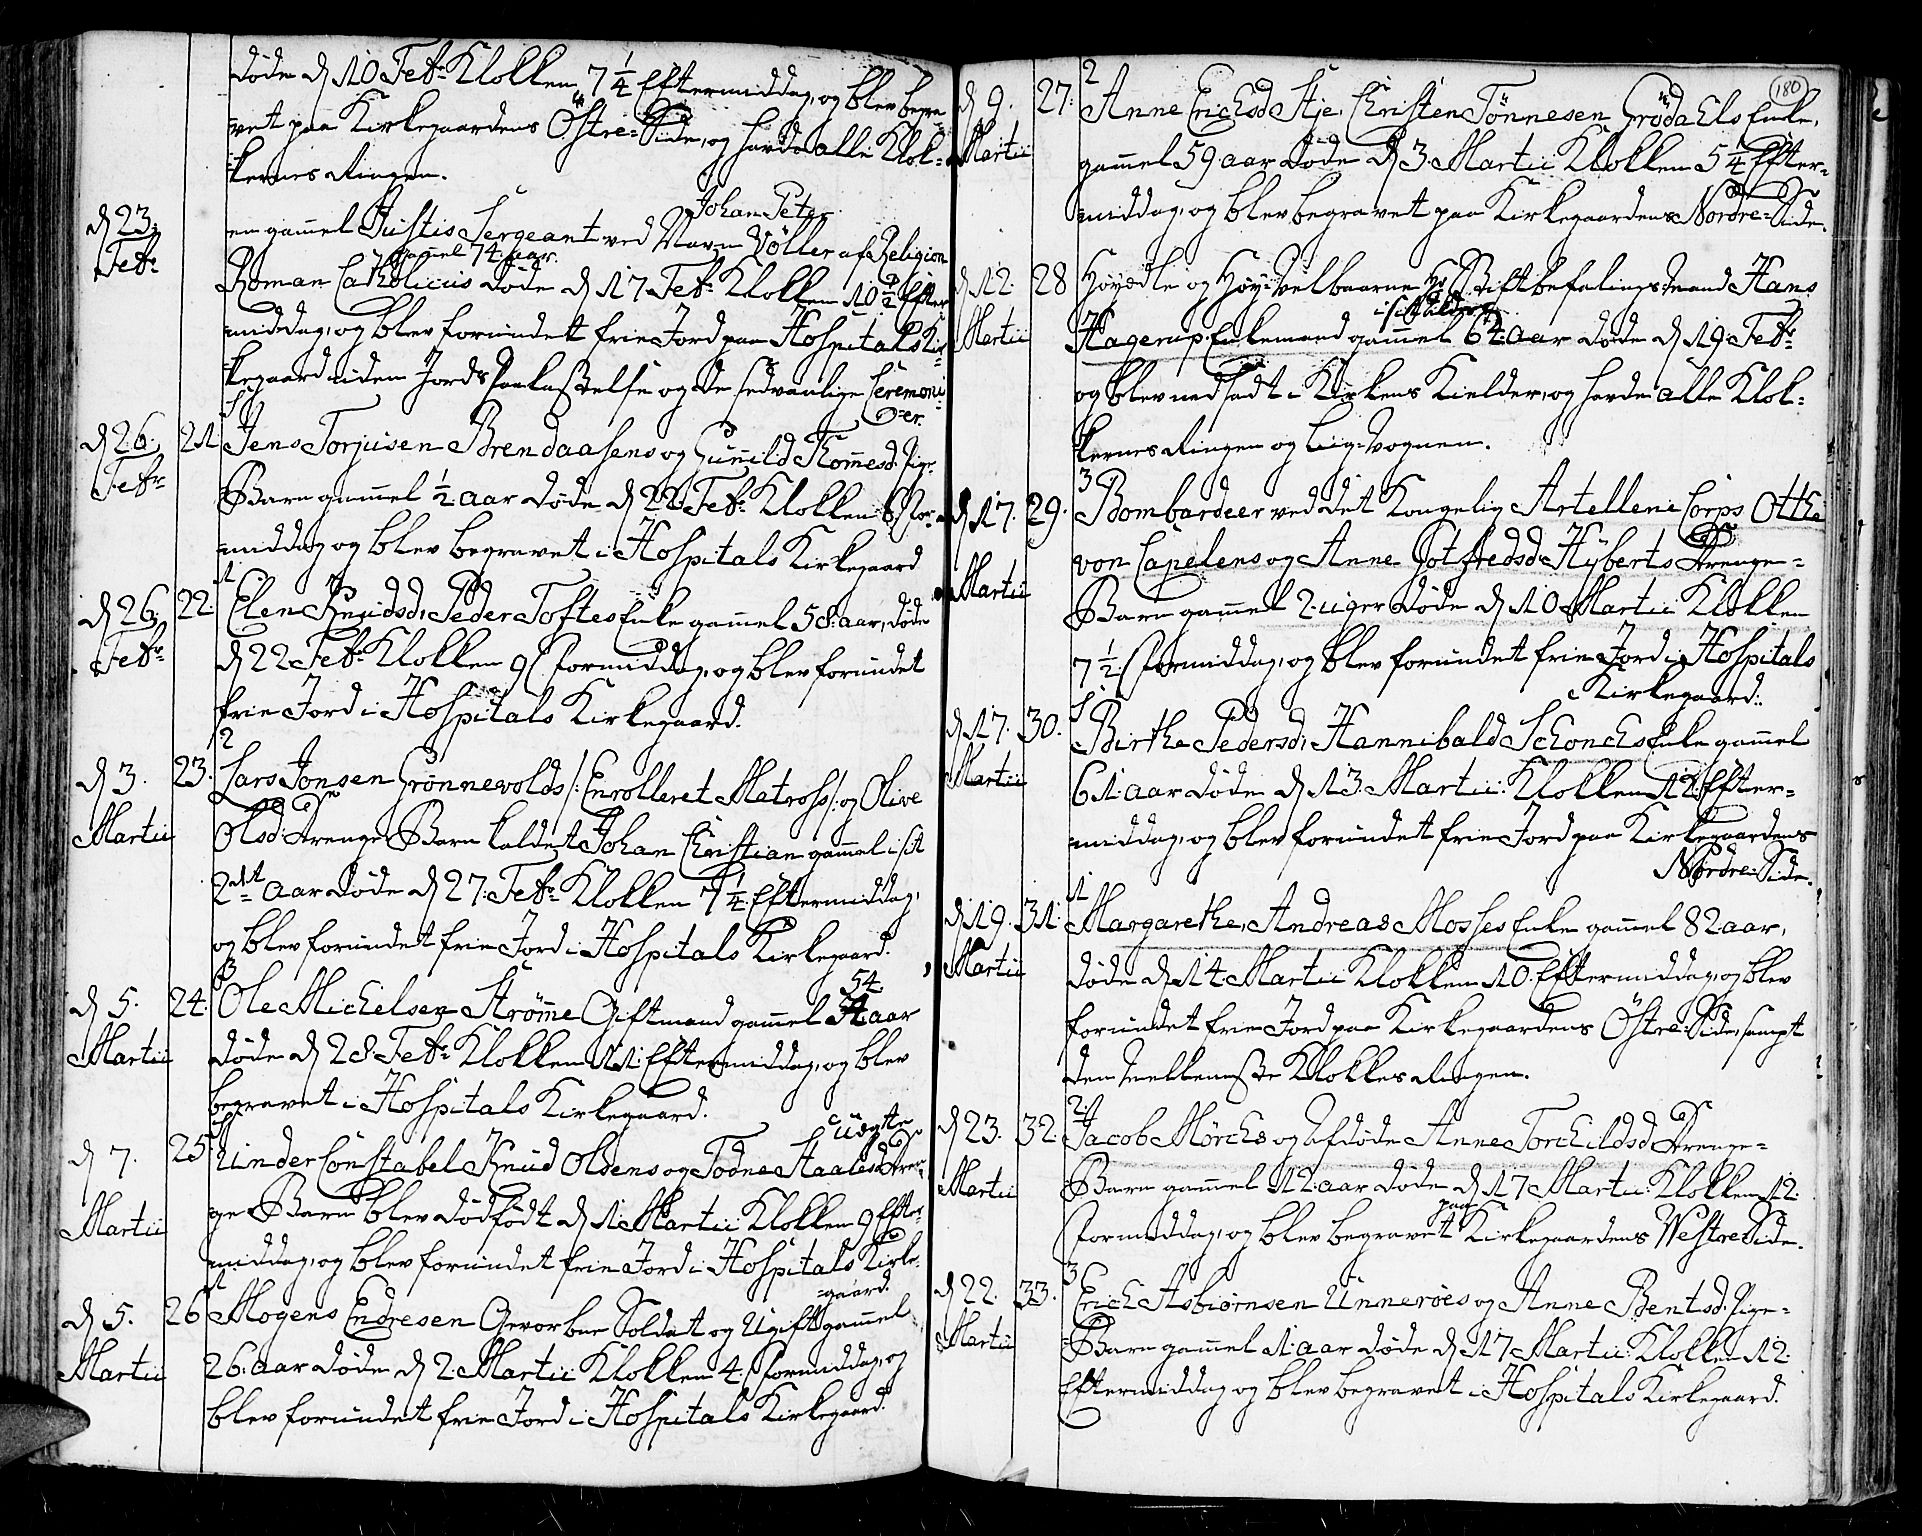 døde d 10 Febr: Klokken 7 1/4 Eftermiddag, og blev begra-
vet paa Kirkegaardens Östre-Side, og havde alle Klok-
kernes Ringen.
d 23. Febr:
en gammel Justis Sergeant ved Navn Johan Peter Völler af Religion
Roman Catholicus gammel 74 aar. døde d 17 Febr: Klokken 10 1/2 Efter-
middag, og blev forundet frie Jord paa Hospitals Kir-
kegaard uden Jords Paakastelse og de sedvanlige Ceremoni-
er.
d 26. Febr: 21
Jens Torjusen Brendaasens og Gunild Thomesd. Pige-
Barn gammel 1/2 aar døde d 22 Febr: Klokken 8 For-
middag og blev begravet i Hospitals Kirkegaard
1
d 26. Febr: 22.
Elen Knudsd, Peder Toftes Enke gammel 58 aar, døde
d 22 Febr: Klokken 9 Formiddag, og blev forundet
frie Jord i Hospitals Kirkegaard.
2
d 3. Martii 23.
Lars Jonsen Grönnevolds /: Enrolleret Matross :/ og Olive
Olsd: Drenge Barn kaldet Johan Christian gammel i sit
2det aar døde d 27. Febr: Klokken 7 1/4 Eftermiddag,
og blev forundet frie Jord i Hospitals Kirkegaard.
3
d 5. Martii 24.
Ole Michelsen Strömme Giftmand gammel 54 aar
døde d 28. Febr: Klokken 11 Eftermiddag, og blev
begravet i Hospitals Kirkegaard.
d 7. Martii 25.
Under Constabel Knud Olsens og Todne Staalesd uægte Dren-
ge Barn blev dödfödt d 1 Martii Klokken 9 Efter-
middag, og blev forundet frie Jord i Hospitals Kirke-
gaard.
1
d 5. Martii 26
Mogens Endresen Gevorben Soldat og Ugift gammel
26 aar døde d 2. Martii Klokken 4. Formiddag, og
blev forundet frie Jord i Hospitals Kirkegaard.
180
2
d 9. Martii 27.
Anne Erichsd Aje, Christen Tönnesen Gröda Els Enke,
gammel 59 aar døde d 3. Martii Klokken 5 1/4 Efter-
middag, og blev begravet paa Kirkegaardens Nordre-Side.
d 12. Martii 28
Høyædle og Høy-Velbaarne Hr Stiftbefalingsmand Hans
Hagerup Enkemand gammel i sit Alders 64 aar døde d 19 Febr:
og blev nedsadt i Kirkens Kielder, og havde alle Klok-
kernes Ringen og Liig-Vognen.
3
d 17. Martii 29.
Bombardeer ved det Kongelig Artelleni Corps Otthe
von Capelens og Anne Gotfredsd Hyberts Drenge-
Barn gammel 2. uger døde d 10 Martii Klokken
7 1/2. Formiddag, og blev forundet frie Jord i Hospitals
Kirkegaard.
d 17. Martii 30.
Birthe Pedersd, Hannibald Schonchs Enke gammel
61. aar døde d 13. Martii: Klokken 12. Efter-
middag, og blev forundet frie Jord paa Kirkegaardens
Nordre-Side.
1
d 19. Martii 31.
Margarethe, Andreas Mosses Enke gammel 82 aar,
døde d 14 Martii Klokken 10. Eftermiddag, og blev
forundet frie Jord paa Kirkegaardens Östre-Side, sampt
den mellemste Klokkes Ringen.
2
d 23. Martii 32.
Jacob Mörchs og Afdøde Anne Torchildsd Drenge-
Barn gammel 12. aar døde d 17 Martii: Klokken 12.
Formiddag, og blev begravet paa Kirkegaardens Westre Side.
3
d 22. Martii 33.
Erich Asbiörnsen Unneröes og Anne Bentsd. Pige-
Barn gammel 1 aar døde d 17 Martii: Klokken 12.
Eftermiddag og blev begravet i Hospitals Kirkegaard.